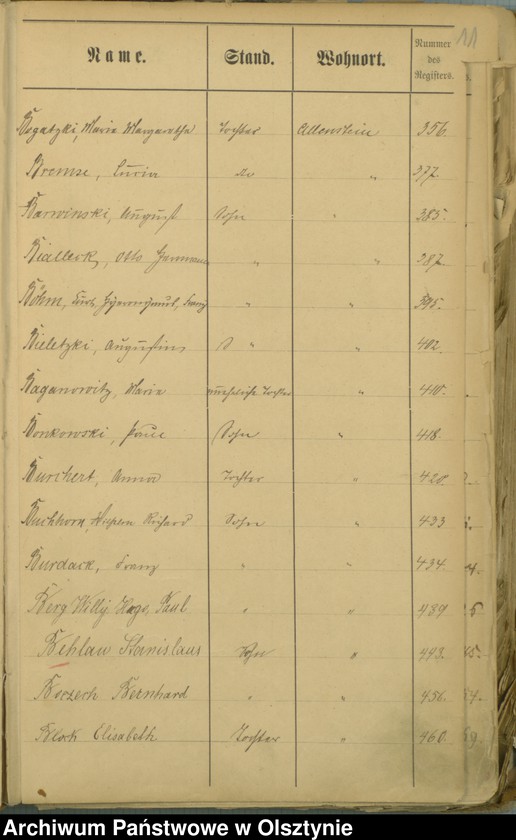 11
Name. Stand. Wohnort. Nummer des Registers.
Bogatzki, Maria Margaretha Tochter Allenstein 356.
Bromse, Lucia do " 377.
Barwinski, August Sohn " 385.
Bialleck, Otto Hermann " " 387.
Böhm, Hyeronymus, Franz " " 395.
Bieletzki, Augustin " " 402.
Baganowitz, Maria uneheliche Tochter " 410.
Bonkowski, Paul Sohn " 418.
Burchert, Anna Tochter " 420.
Buchhorn, Richard Sohn " 433
Burdack, Franz " " 434.
Berg Willy Hugo Paul " " 489
Behlau Stanislaus Sohn " 493.
Bernhard " " 456.
Elisabeth Tochter " 460.
Archiwum Państwowe w Olsztynie